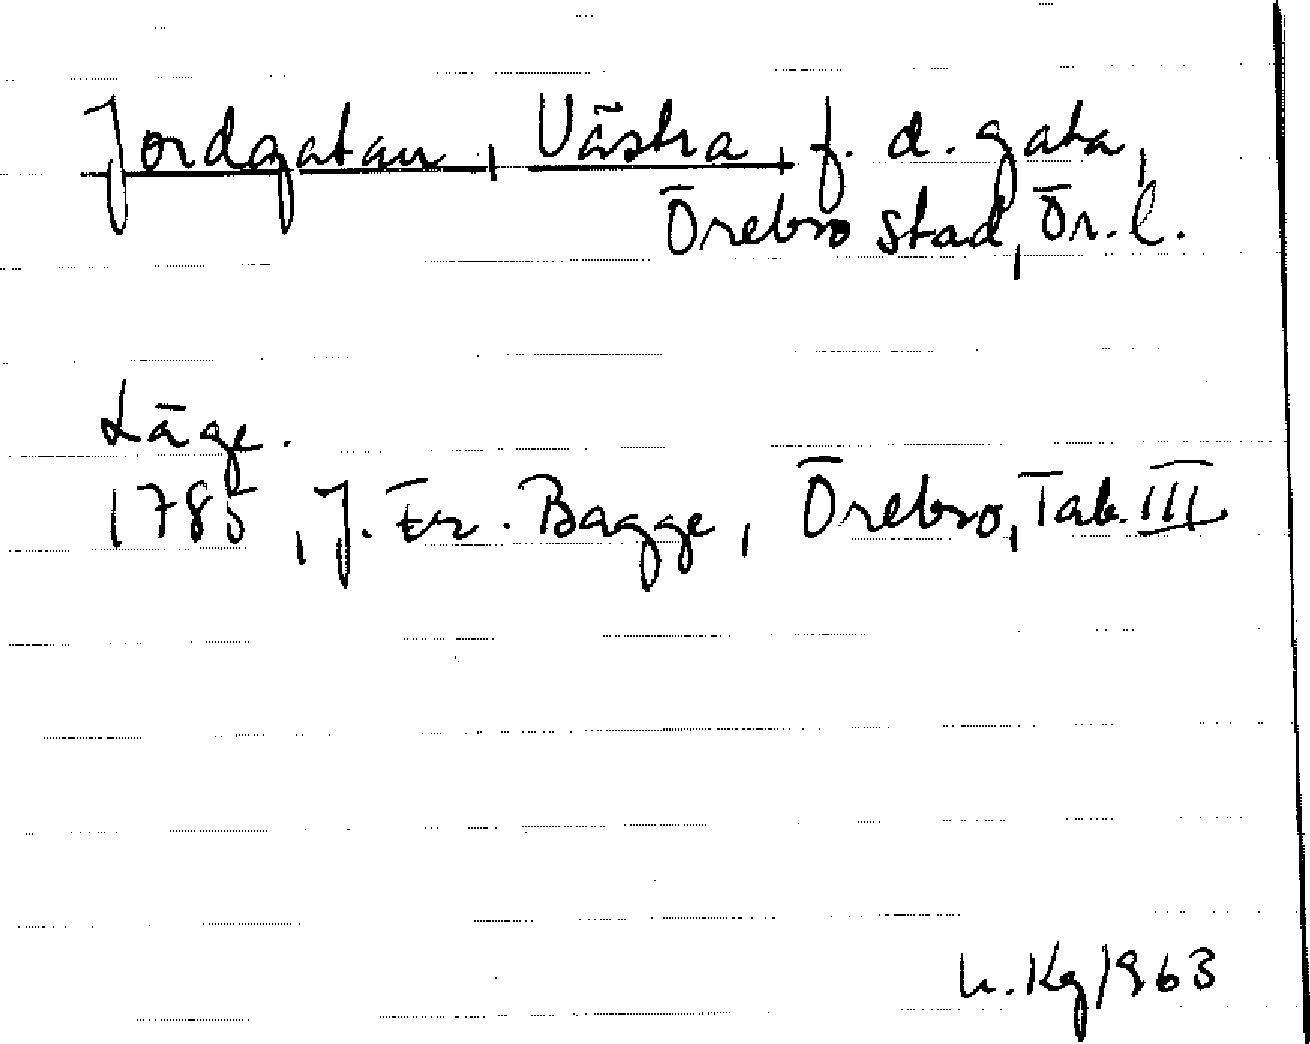 Jordgatan, Västra, f. d. gata,
Örebro stad, Ör. l.
Läge.
1785, J. Er. Bagge, Örebro, Tab. III
h. Kg 1963